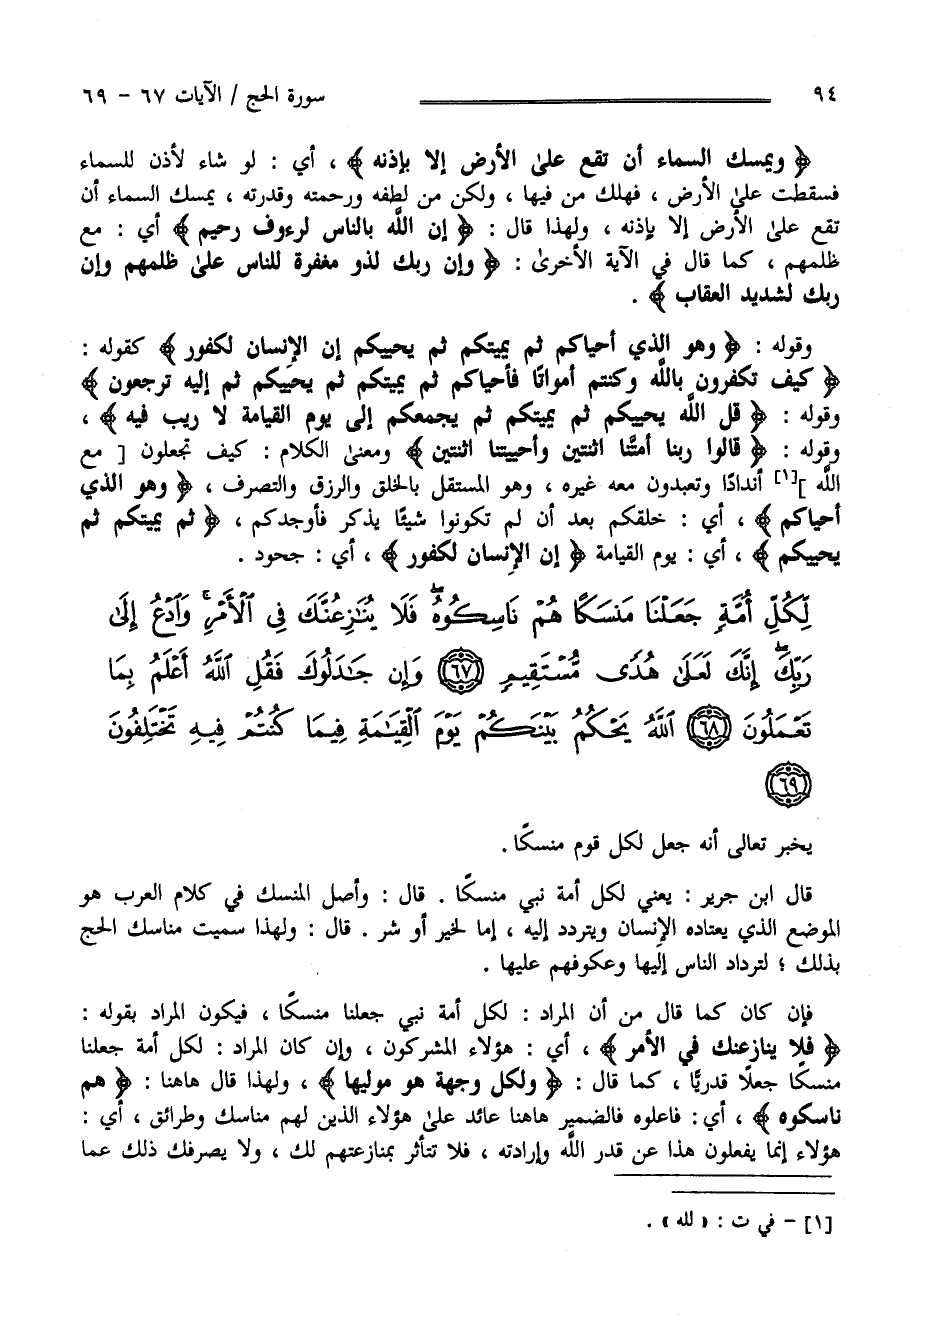 ٩٤ سورة الحج / الآيات ٦٧ - ٦٩
﴿ ويمسك السماء أن تقع على الأرض إلا بإذنه ﴾ ، أي : لو شاء لأذن للسماء
فسقطت على الأرض ، فهلك من فيها ، ولكن من لطفه ورحمته وقدرته ، يمسك السماء أن
تقع على الأرض إلا بإذنه ، ولهذا قال : ﴿ إن الله بالناس لرءوف رحيم ﴾ أي : مع
ظلمهم ، كما قال في الآية الأخرى : ﴿ وإن ربك لذو مغفرة للناس على ظلمهم وإن
ربك لشديد العقاب ﴾ .
وقوله : ﴿ وهو الذي أحياكم ثم يميتكم ثم يحييكم إن الإنسان لكفور ﴾ كقوله :
﴿ كيف تكفرون بالله وكنتم أمواتًا فأحياكم ثم يميتكم ثم يحييكم ثم إليه ترجعون ﴾
وقوله : ﴿ قل الله يحييكم ثم يميتكم ثم يجمعكم إلى يوم القيامة لا ريب فيه ﴾ ،
وقوله : ﴿ قالوا ربنا أمتَّنا اثنتين وأحييتنا اثنتين ﴾ ومعنى الكلام : كيف تجعلون [ مع
الله ][١] أندادًا وتعبدون معه غيره ، وهو المستقل بالخلق والرزق والتصرف ، ﴿ وهو الذي
أحياكم ﴾ ، أي : خلقكم بعد أن لم تكونوا شيئًا يذكر فأوجدكم ، ﴿ ثم يميتكم ثم
يحييكم ﴾ ، أي : يوم القيامة ﴿ إن الإنسان لكفور ﴾ ، أي : جحود .
لِّكُلِّ أُمَّةٍ جَعَلْنَا مَنسَكًا هُمْ نَاسِكُوهُۖ فَلَا يُنَٰزِعُنَّكَ فِي ٱلْأَمْرِۚ وَٱدْعُ إِلَىٰ
رَبِّكَۖ إِنَّكَ لَعَلَىٰ هُدًى مُّسْتَقِيمٍ ﴿٦٧﴾ وَإِن جَٰدَلُوكَ فَقُلِ ٱللَّهُ أَعْلَمُ بِمَا
تَعْمَلُونَ ﴿٦٨﴾ ٱللَّهُ يَحْكُمُ بَيْنَكُمْ يَوْمَ ٱلْقِيَٰمَةِ فِيمَا كُنتُمْ فِيهِ تَخْتَلِفُونَ
﴿٦٩﴾
يخبر تعالى أنه جعل لكل قوم منسكًا .
قال ابن جرير : يعني لكل أمة نبي منسكًا . قال : وأصل المنسك في كلام العرب هو
الموضع الذي يعتاده الإنسان ويتردد إليه ، إما لخير أو شر . قال : ولهذا سميت مناسك الحج
بذلك ؛ لترداد الناس إليها وعكوفهم عليها .
فإن كان كما قال من أن المراد : لكل أمة نبي جعلنا منسكًا ، فيكون المراد بقوله :
﴿ فلا ينازعنك في الأمر ﴾ ، أي : هؤلاء المشركون ، وإن كان المراد : لكل أمة جعلنا
منسكًا جعلًا قدريًّا ، كما قال : ﴿ ولكل وجهة هو موليها ﴾ ، ولهذا قال هاهنا : ﴿ هم
ناسكوه ﴾ ، أي : فاعلوه فالضمير هاهنا عائد على هؤلاء الذين لهم مناسك وطرائق ، أي :
هؤلاء إنما يفعلون هذا عن قدر الله وإرادته ، فلا تتأثر بمنازعتهم لك ، ولا يصرفك ذلك عما
[١] - في ت : « لله » .